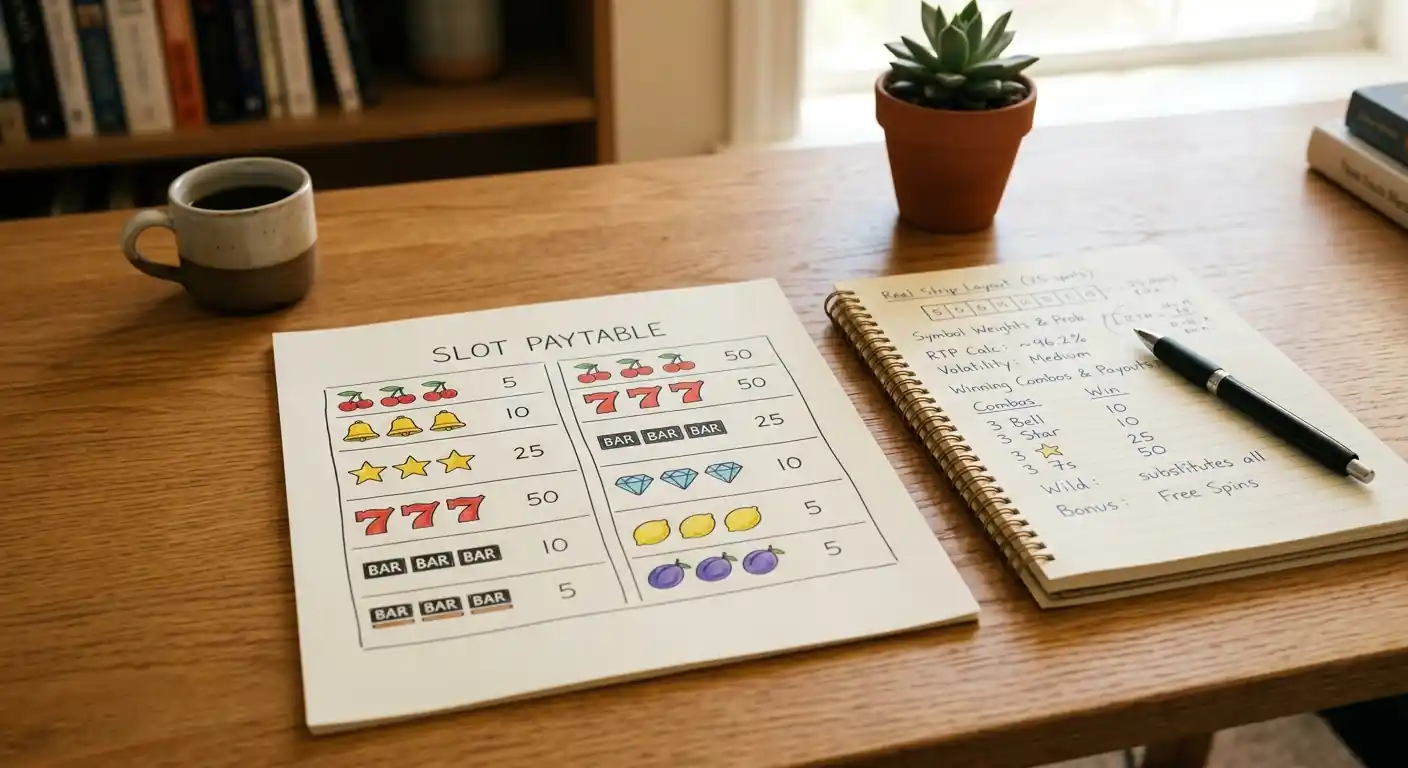 SLOT PAYTABLE
5
10
25
777 50
BAR BAR BAR 10
BAR BAR BAR 5
50
777 50
BAR BAR BAR 25
10
5
5
Strip Layout
Symbol Weights & Prob
RTP Calc: ~96.2%
Volatility: Medium
Winning Combos & Payouts
Combos Win
3 Bell 10
3 Star 10
3 25
3 7s 50
Wild: substitutes all
Bonus: Free Spins